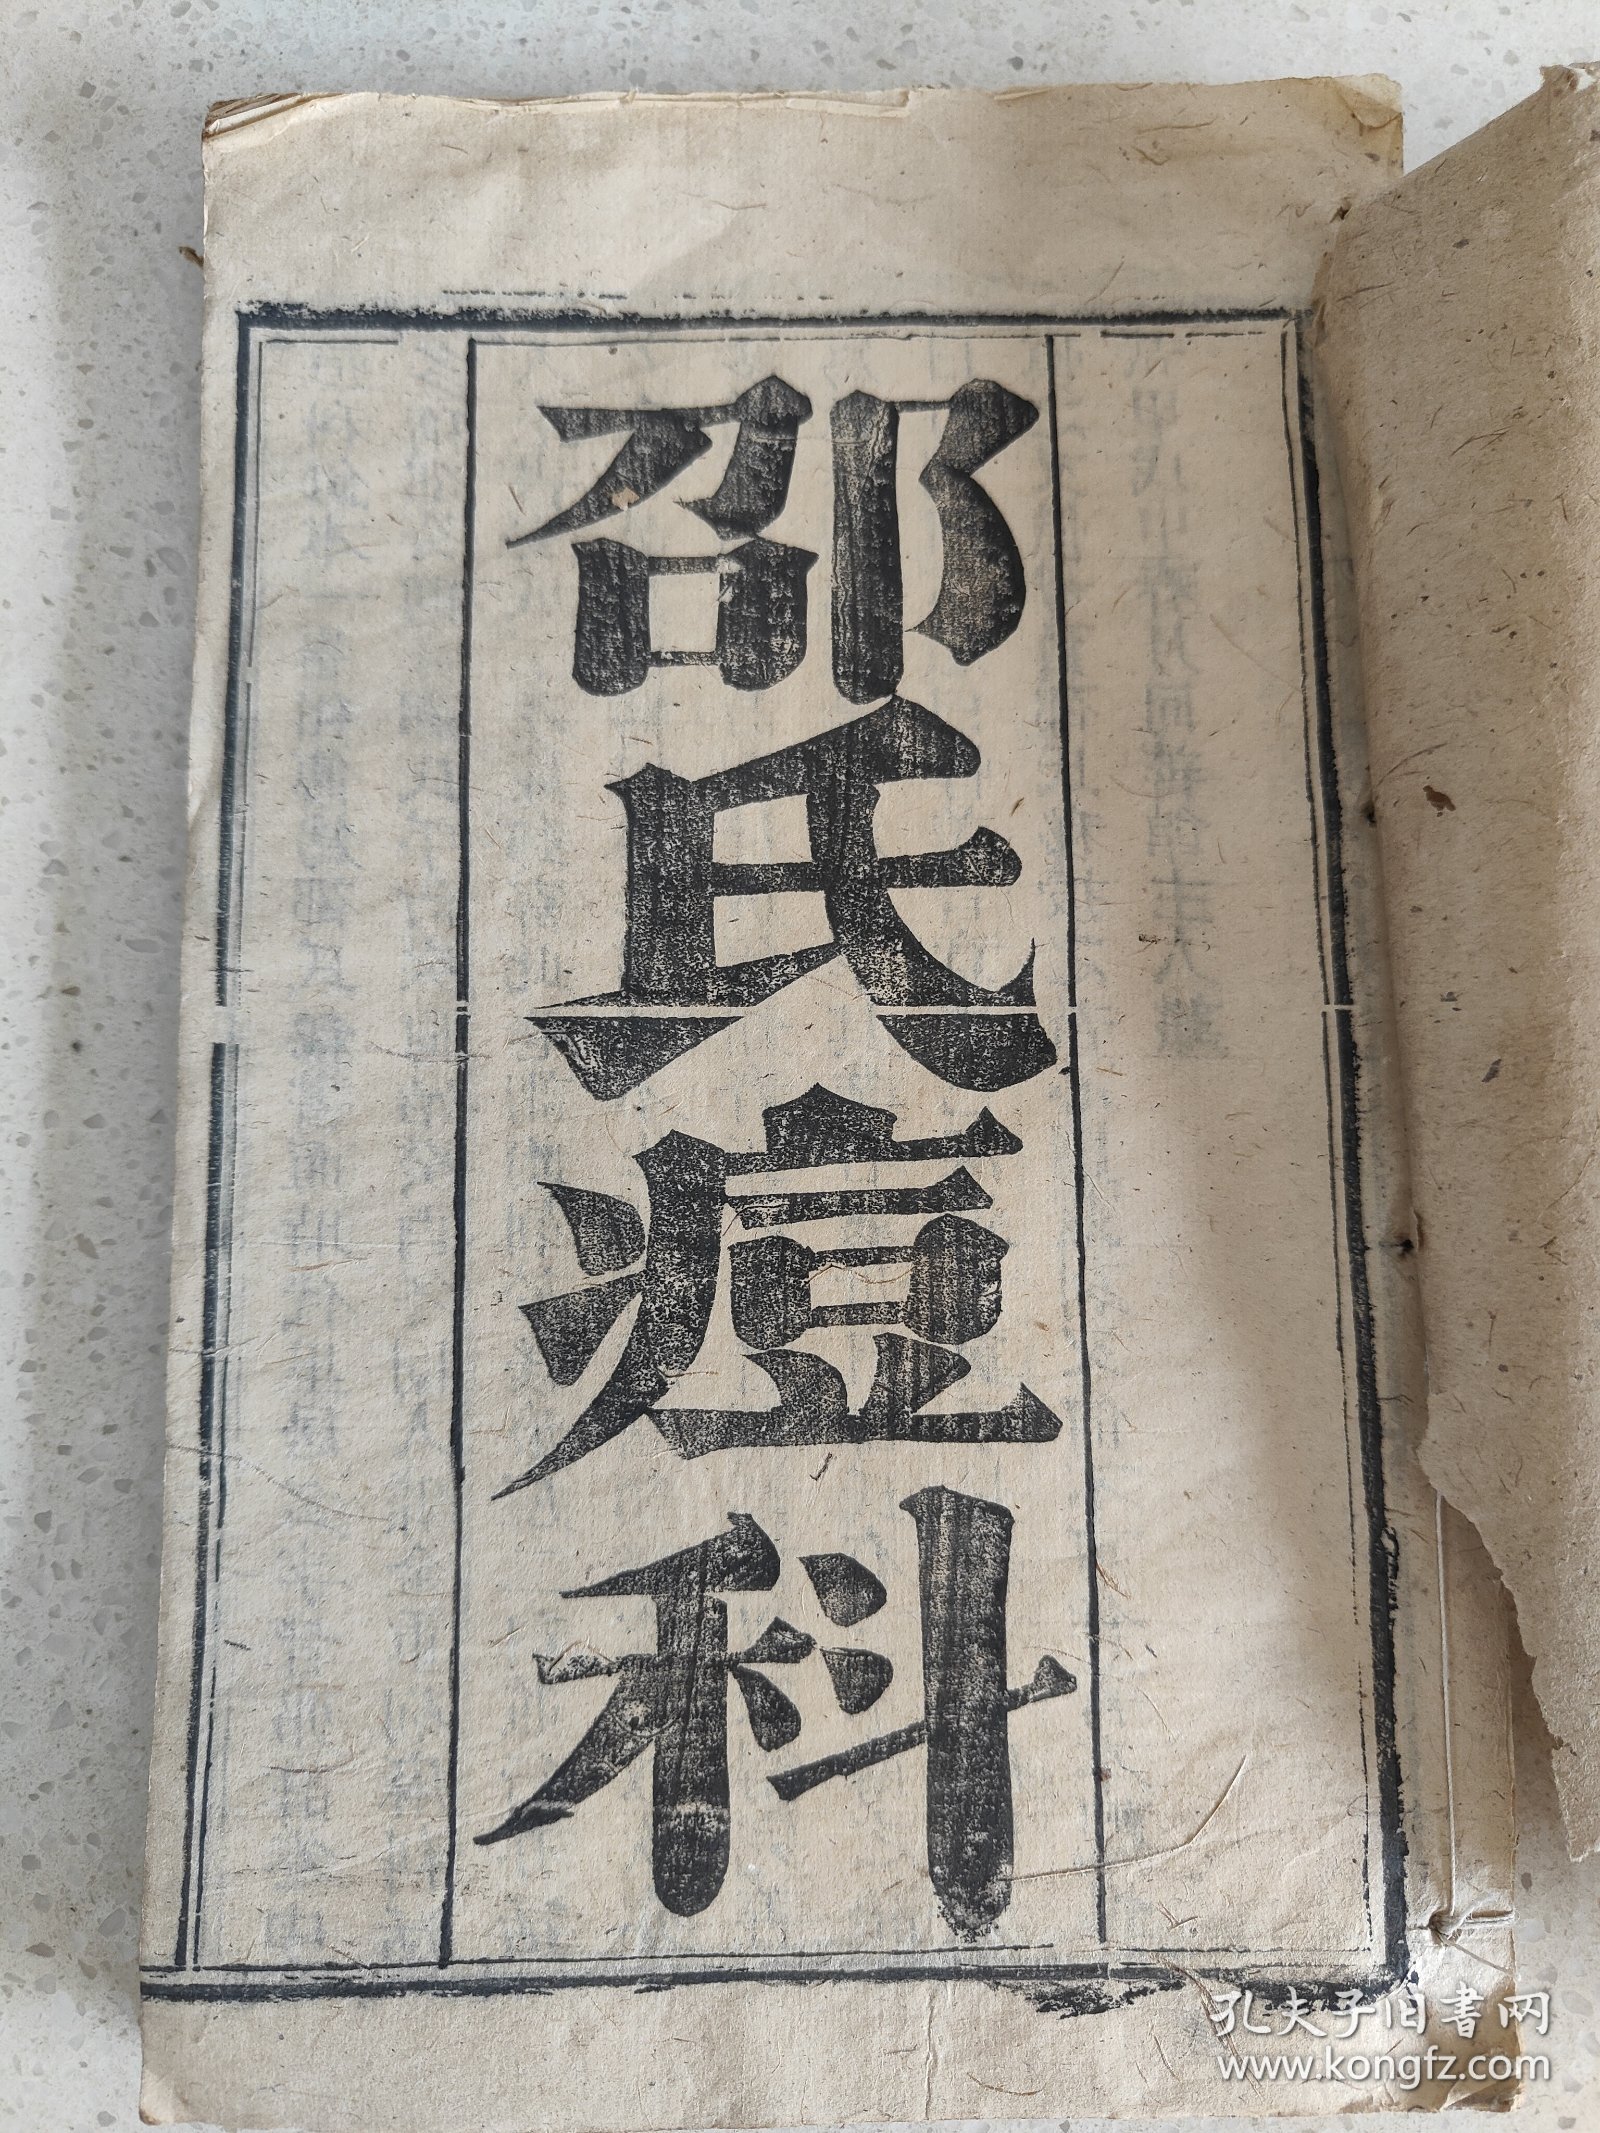 邵氏痘科
孔夫子旧書网
www.kongfz.com